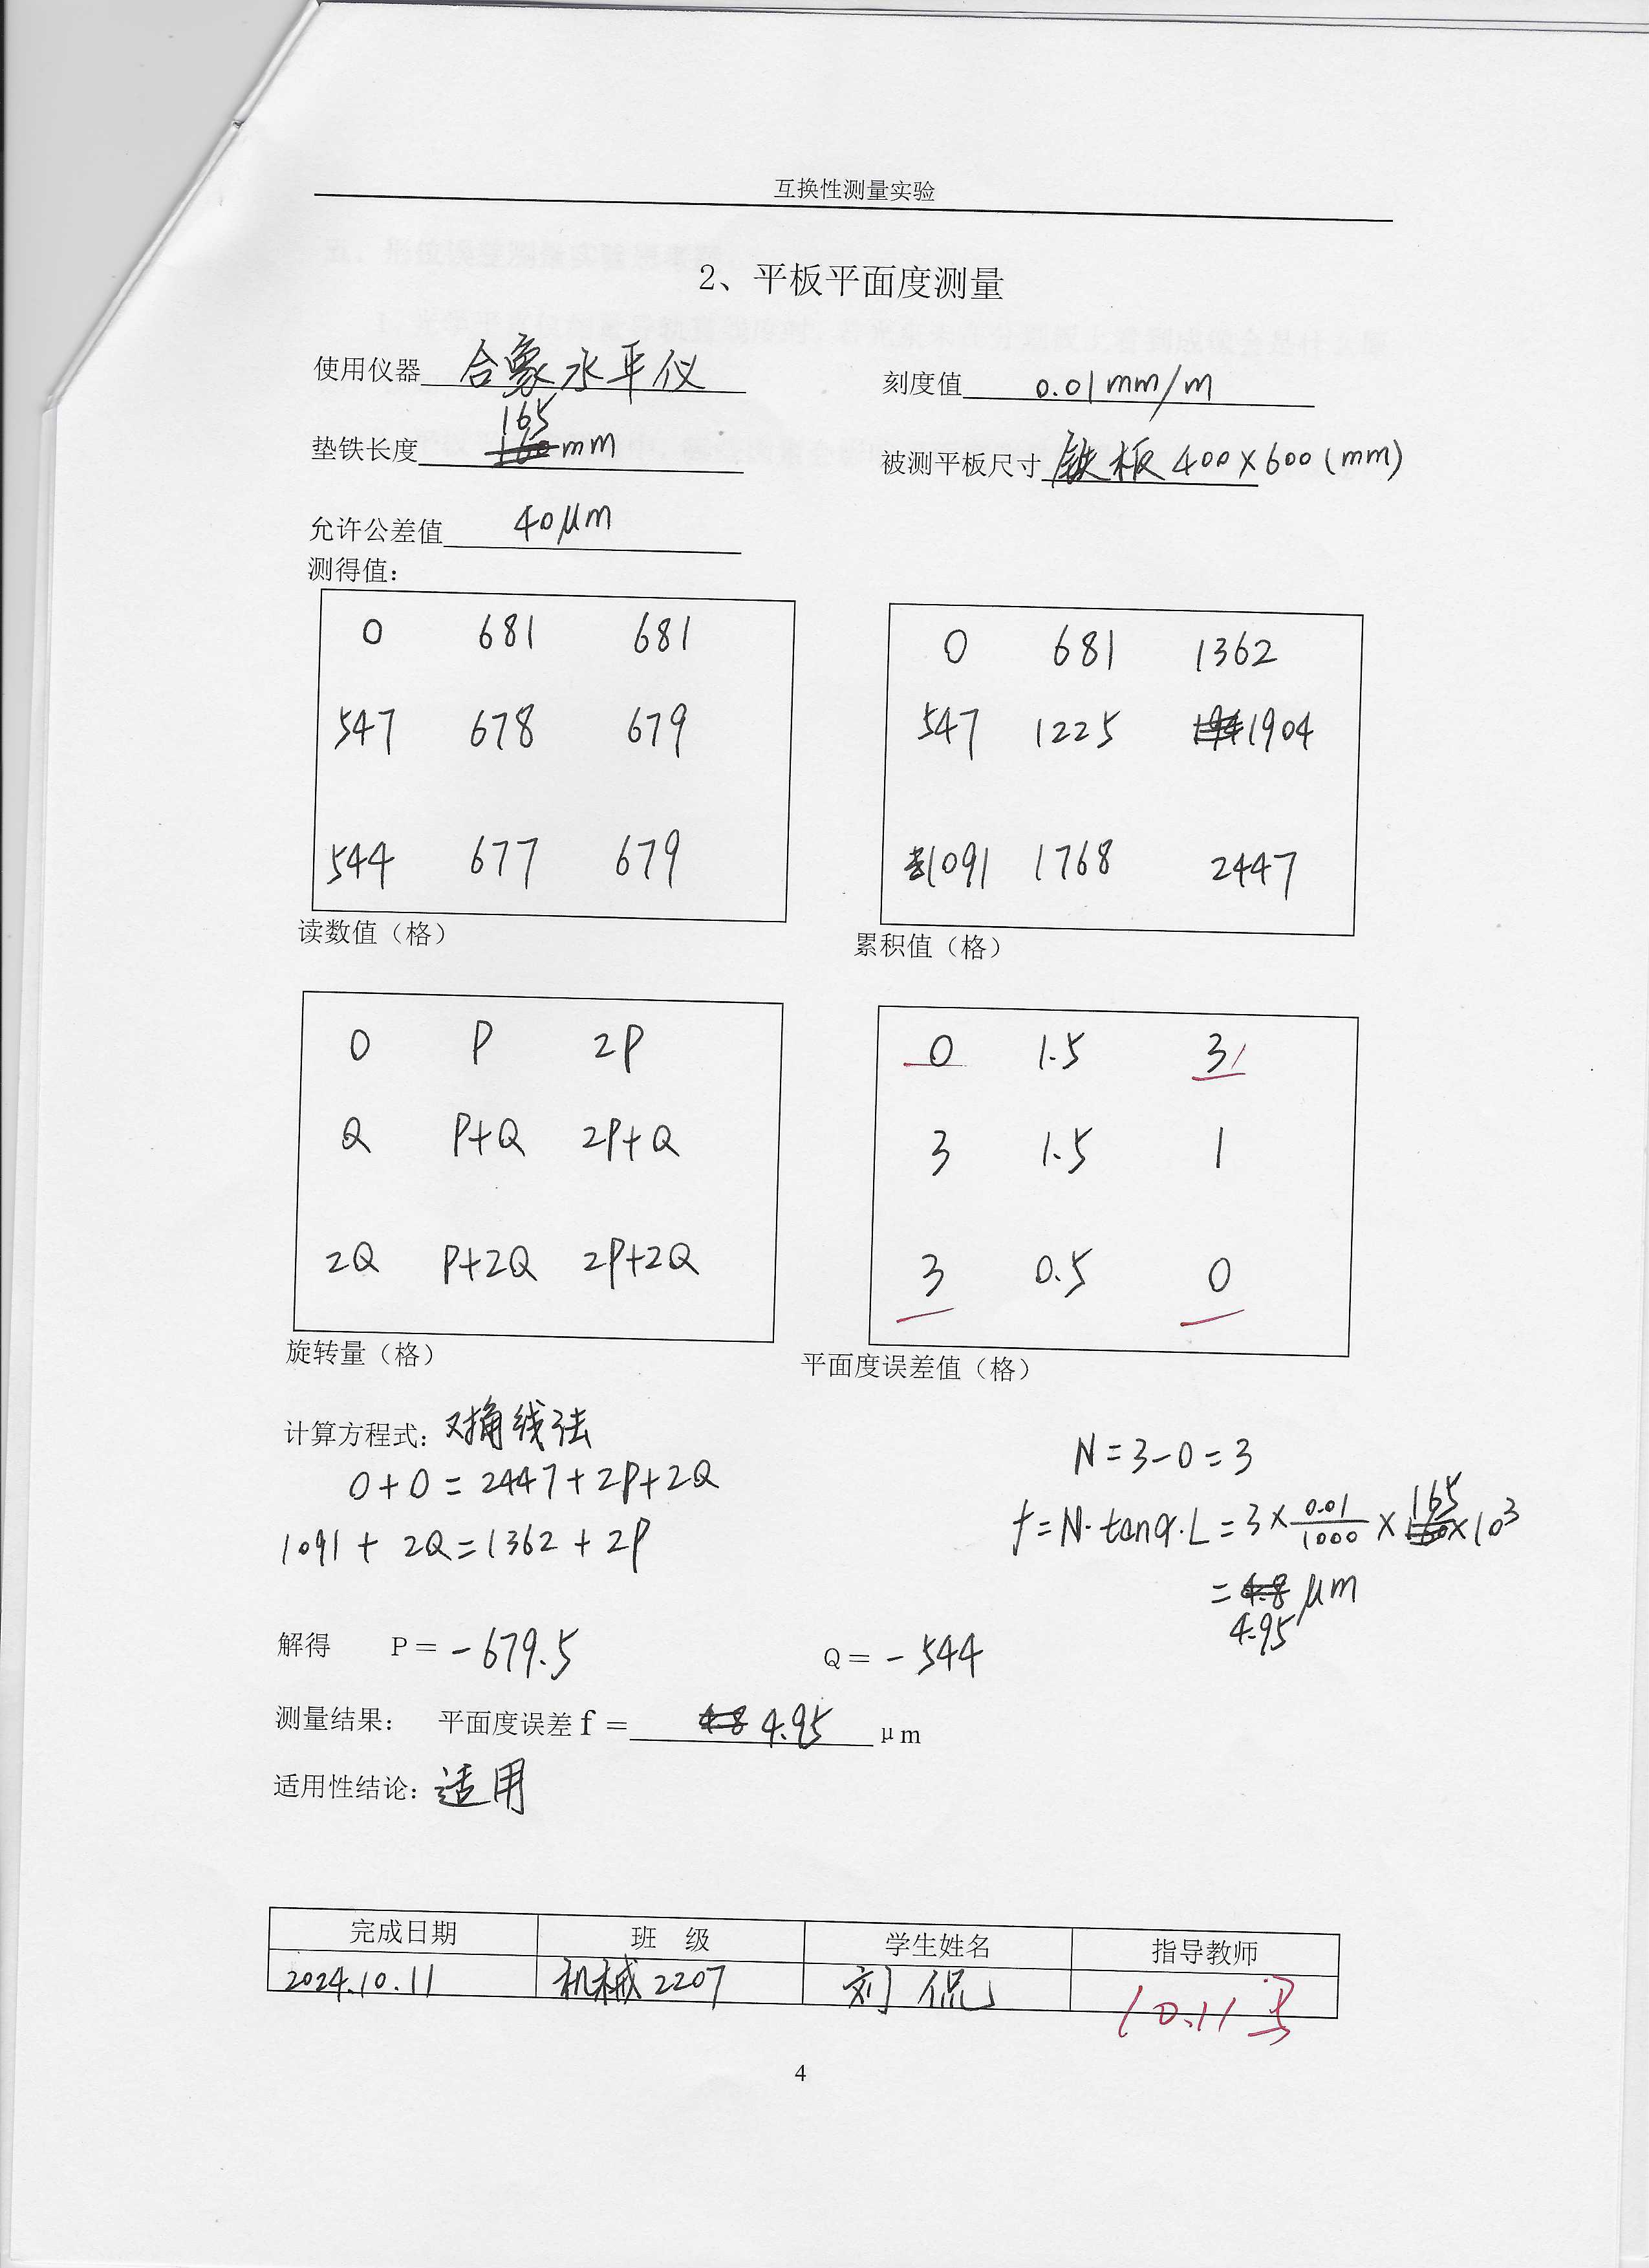 互换性测量实验
2、平板平面度测量
使用仪器 合象水平仪 刻度值 0.01mm/m
垫铁长度 165 mm 被测平板尺寸 铁板 400×600(mm)
允许公差值 40μm
测得值：
0 681 681
547 678 679
544 677 679
读数值（格）
0 681 1362
547 1225 1904
1091 1768 2447
累积值（格）
0 P 2P
Q P+Q 2P+Q
2Q P+2Q 2P+2Q
旋转量（格）
0 1.5 3
3 1.5 1
3 0.5 0
平面度误差值（格）
计算方程式：对角线法
0+0=2447+2P+2Q
1091+2Q=1362+2P
N=3-0=3
f=N·tanα·L=3×0.01/1000×165×10³
=4.95μm
解得 P＝-679.5 Q＝-544
测量结果： 平面度误差f＝ 4.95 μm
适用性结论：适用
完成日期 班 级 学生姓名 指导教师
2024.10.11 机械2207 刘侃 10.11
4